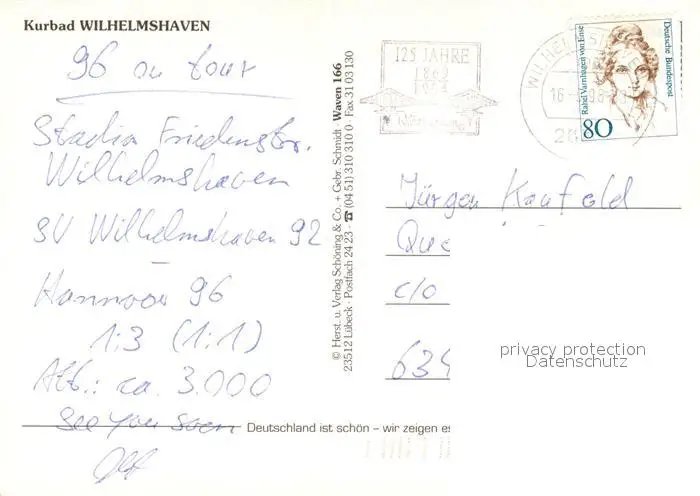 Kurbad WILHELMSHAVEN
96 on tour
Stadion Friedenstr.
Wilhelmshaven
SV Wilhelmshaven 92
Hannover 96
1:3 (1:1)
Att.: ca. 3.000
See you soon
Deutschland ist schön – wir zeigen es
© Herst. u. Verlag Schöning & Co. + Gebr. Schmidt · Waven 166
23512 Lübeck · Postfach 24 23 · ☎ (04 51) 310 310 0 · Fax 31 03 130
125 JAHRE
1869
1994
WILHELMSH
16
Rahel Varnhagen von Ense
Deutsche Bundespost
80
Jürgen Kaufold
Que
c/o
634
privacy protection
Datenschutz